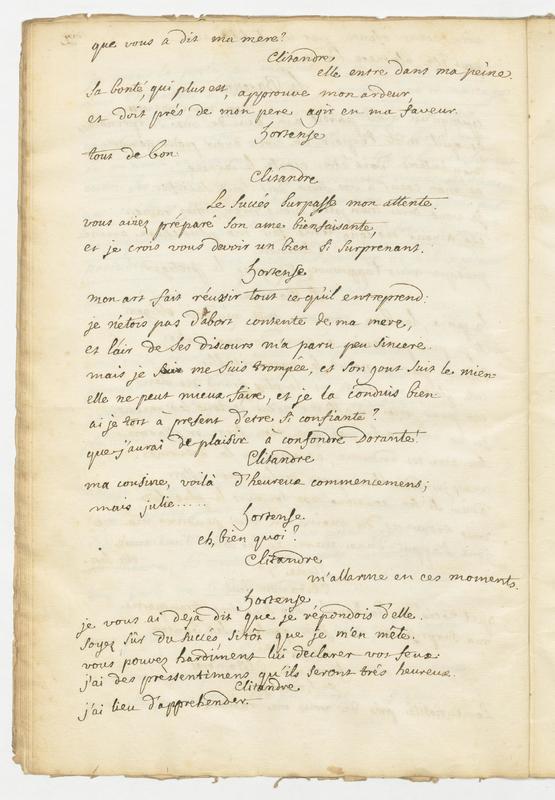 que vous a dit ma mere?
Clitandre
elle entre dans ma peine.
sa bonté, qui plus est, approuve mon ardeur,
et doit prés de mon pere agir en ma faveur.
hortense
tout de bon
Clitandre
Le succés surpasse mon attente.
vous aviez préparé son ame bienfaisante,
et je crois vous devoir un bien si surprenant.
hortense
mon art fait réussir tout ce qu'il entreprend:
je n'etois pas d'abort contente de ma mere,
et l'air de ses discours m'a paru peu sincere.
mais je me suis trompée, et son gout suit le mien-
elle ne peut mieux faire, et je la conduis bien.
ai je tort à present d'etre si confiante?
que j'aurai de plaisir à confondre dorante!
Clitandre
ma cousine, voilà d'heureux commencemens;
mais julie.....
hortense.
eh, bien quoi?
Clitandre
m'allarme en ces moments.
hortense
je vous ai deja dit que je répondois d'elle.
soyez sûr du succés sitôt que je m'en mêle.
vous pouvez hardiment lui declarer vos feux
j'ai des pressentimens qu'ils seront très heureux.
Clitandre
j'ai lieu d'apprehender.